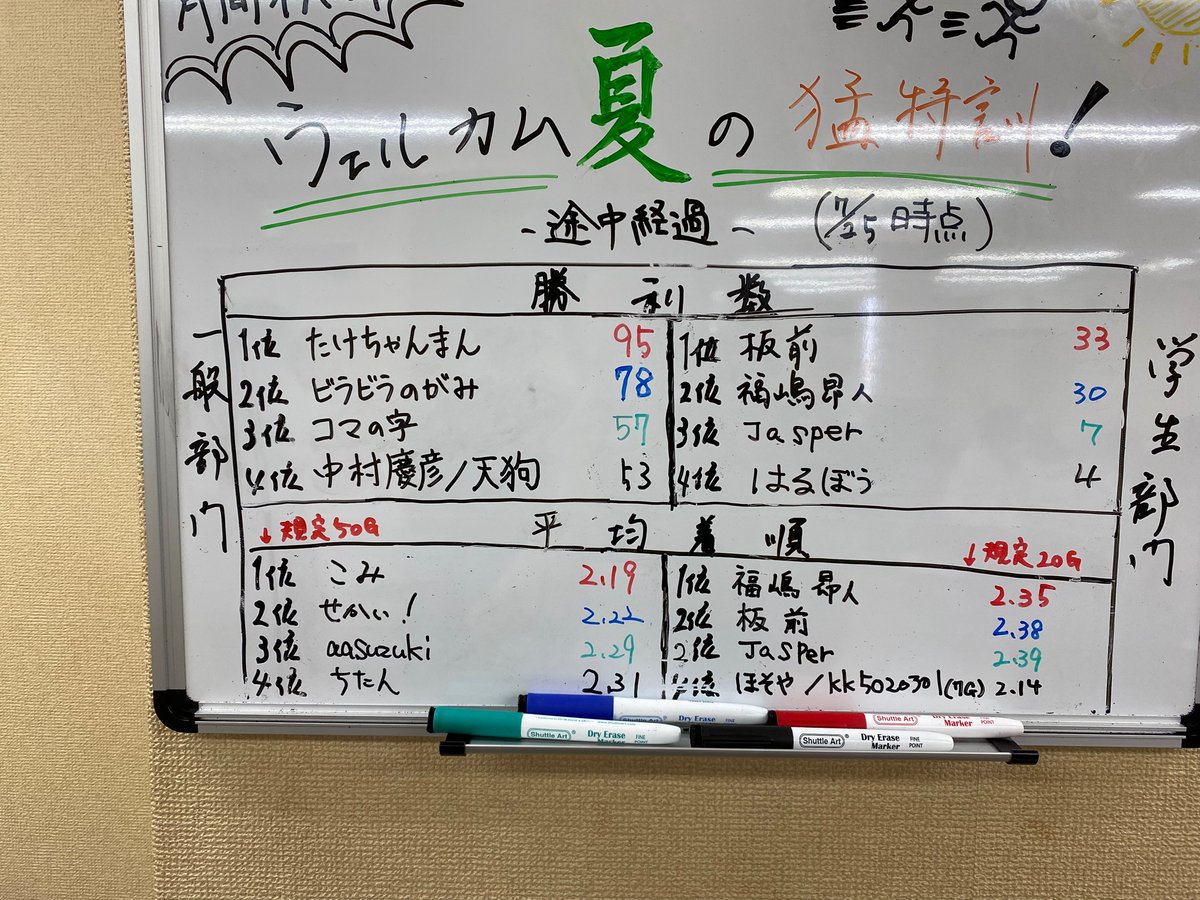 ウェルカム夏の猛特訓!
~途中経過~ (7/25時点)
一般部門
学生部門
勝利数
1位 たけちゃんまん 95
2位 ビラビラのがみ 78
3位 コマの字 57
4位 中村慶彦/天狗 53
1位 板前 33
2位 福嶋昂人 30
3位 Jasper 7
4位 はるぼう 4
↓規定50G 平均着順 ↓規定20G
1位 こみ 2.19
2位 せかい! 2.22
3位 aasuzuki 2.29
4位 ちたん 2.31
1位 福嶋昂人 2.35
2位 板前 2.38
2位 Jasper 2.39
4位 ほそや/kk5020301(7G) 2.14
Dry Erase Marker FINE POINT
Shuttle Art Dry Erase Marker FINE POINT
Shuttle Art Dry Erase Marker FINE POINT
Shuttle Art Dry Erase Marker FINE POINT